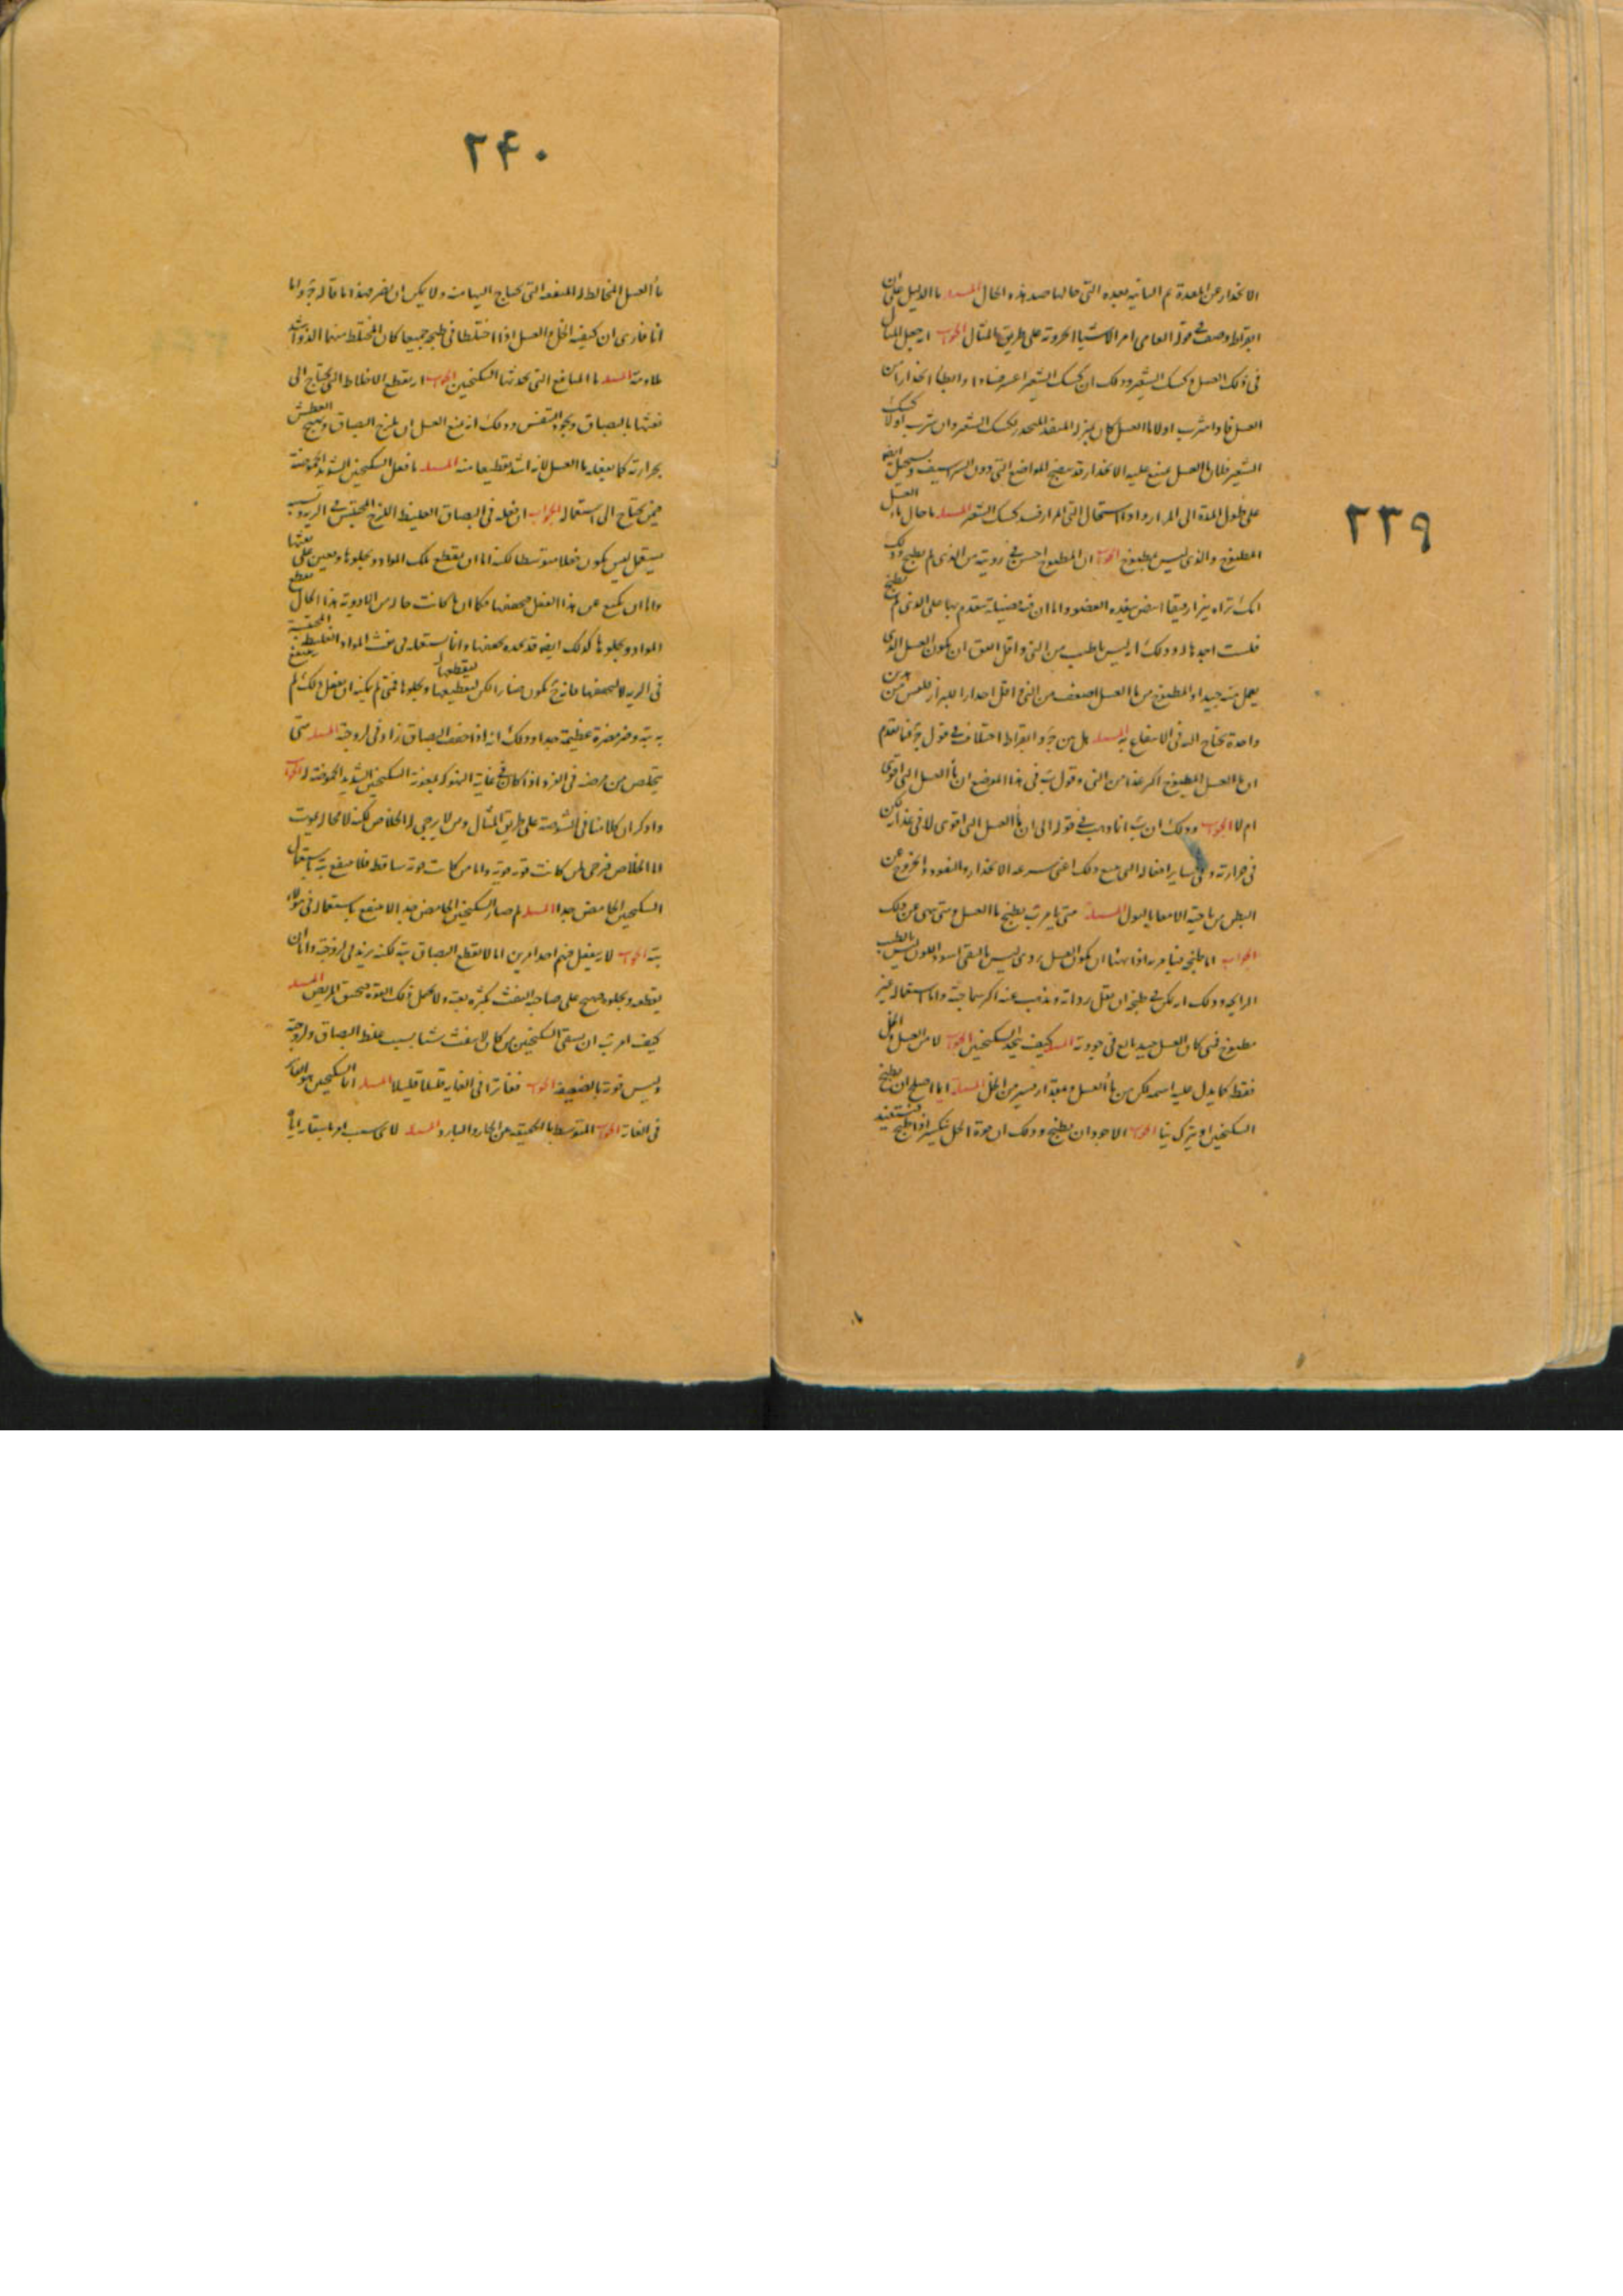 ٢٣٩
الانحدار عن المعدة ثم الثانية بعده التي حالها ضد هذه الحال المسئلة ما الدليل على ان
ابقراط وصف في قوله العامي امر الاشياء على طريق المثال الجواب انه جعل المثال
في ذلك العسل وكشك الشعير وذلك ان كشك الشعير اعسر فسادا وابطأ انحدارا من
العسل فاذا شرب اولا ماء العسل كان بمنزلة المنفذ المحدر لكشك الشعير وان شرب اولا كشك
الشعير فان ماء العسل يمنع عليه الانحدار المواضع التي دون الشراسيف ويستحيل ايضا
على طول المدة الى المرار واذا استحال الى المرار فسد كشك الشعير المسئلة ما حال ماء العسل
المطبوخ والذي ليس بمطبوخ الجواب ان المطبوخ احسن في رؤيته من الذي لم يطبخ وذلك
انك تراه ابيض العضو واما ان فيه فضيلة يتقدم بها على الذي لم يطبخ
فلست اجدها له وذلك انه ليس باطيب من الني واقل ان يكون العسل الذي
يعمل منه جيدا والمطبوخ من ماء العسل اضعف من الني واقل احدارا للبراز
واحدة يحتاج اليه في الانتفاع به المسئلة هل بين وابقراط اختلاف في قول فيما تقدم
ان ماء العسل المطبوخ اكثر غذاء من الني وقول في هذا الموضع ان ماء العسل الني اقوى
ام لا الجواب وذلك ان انما ذهب في قوله الى ان ماء العسل الني اقوى لا في غذائه لكن
في حرارته وفي ساير افعاله التي تتبع ذلك اعني سرعة الانحدار والنفوذ والخروج عن
البطن من ناحية الامعاء بالبول المسئلة متى يامر بطبخ ماء العسل ومتى نهى عن ذلك
الجواب اما طبخه فيامر به اذا تهيأ ان يكون العسل ردي ليس بالنقي اسود اللون ليس بالطيب
الرايحة وذلك انه يمكن في طبخه ان تقل رداءته ويذهب عنه اكثر سماجته واما استعماله غير
مطبوخ فمتى كان العسل جيد بالغ في جودته المسئلة كيف يتخذ السكنجبين الجواب لا من العسل والخل
فقط كما يدل عليه اسمه لكن من ماء العسل ومقدار يسير من الخل المسئلة ايما اصلح ان يطبخ
السكنجبين او يترك نيا الجواب الاجود ان يطبخ وذلك ان قوة الخل تنكسر اذا طبخ
٢۴٠
ماء العسل المخالط له المنفعة التي يحتاج اليها منه ولا يمكن ان يضر فهذا ما قاله واما
انا فارى ان كيفية الخل والعسل اذا اختلطا في طبخه جميعا كان المختلط منهما الذ واشد
ملاءمة المسئلة ما المنافع التي يحدثها السكنجبين الجواب انه يقطع الاخلاط التي يحتاج الى
نفثها بالبصاق ويجود التنفس وذلك انه يمنع العسل ان يلزج البصاق ويهيج العطش
بحرارته كما يفعله ماء العسل لانه اشد تقطيعا منه المسئلة ما فعل السكنجبين الشديد الحموضة
فيمن يحتاج الى استعماله الجواب ان فعله في البصاق الغليظ اللزج المحتبس في الرية
ليس يكون فعلا متوسطا لكنه اما ان يقطع تلك المواد ويجلوها ويعين على نفثها
واما ان يمتنع عن هذا الفعل فيجففها فكما ان ما كانت حاله من الادوية هذا الحال يقطع
المواد ويجلوها كذلك ايضا قد نجده يجففها وانما يستعمله في نفث المواد الغليظة المحتقنة
في الرية لا ليجففها فانه يكون ضارا لكن ليقطعها ويجلوها فمتى لم يمكنه ان يفعل ذلك لم ينتفع
به بتة وضر مضرة عظيمة جدا وذلك انه اذا خفف البصاق زاد في لزوجته المسئلة متى
يتخلص من مرضه في الفرد اذا كان في غاية النهوكة بمعونة السكنجبين الشديد الحموضة له الجواب
واذكر ان كلامنا في الشوصة على طريق المثال ومن لا يرجى له الخلاص لكنه لا محالة يموت
اما الخلاص فيرجى لمن كانت قوته قوية واما من كانت قوته ساقطة فلا ينتفع بتة باستعمال
السكنجبين الحامض جدا المسئلة لم صار السكنجبين الحامض جدا لا ينتفع باستعماله في هؤلاء
بتة الجواب لانه يفعل فيهم احد امرين اما لا يقطع البصاق بتة لكنه يزيد في لزوجته واما ان
يقطعه ويجلوه فيهيج على صاحبه النفث بكثرة بغتة ولا تحمل ذلك القوة فيختنق المريض المسئلة
كيف امر ان يسقى السكنجبين من كان لا ينفث شيئا بسبب غلظ البصاق ولزوجته
وليس قوته بالضعيفة الجواب مفترا في الغاية قليلا قليلا المسئلة اي السكنجبين هو الفاتر
في الغاية الجواب المتوسط بالحقيقة من الحار والبارد المسئلة لاي سبب امر باسقائه اياه